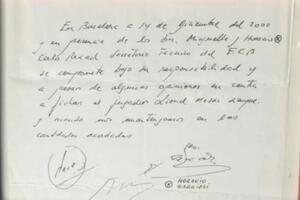 En Barcelona a 14 de Diciembre del 2000
y en presencia de los Srs. Minguella y Horacio
Carles Rexach Secretario Técnico del F.C.B
se compromete bajo su responsabilidad y
a pesar de algunas opiniones en contra
a fichar al jugador Lionel Messi siempre
y cuando nos mantengamos en las
cantidades acordadas
HORACIO
GAGGIOLI